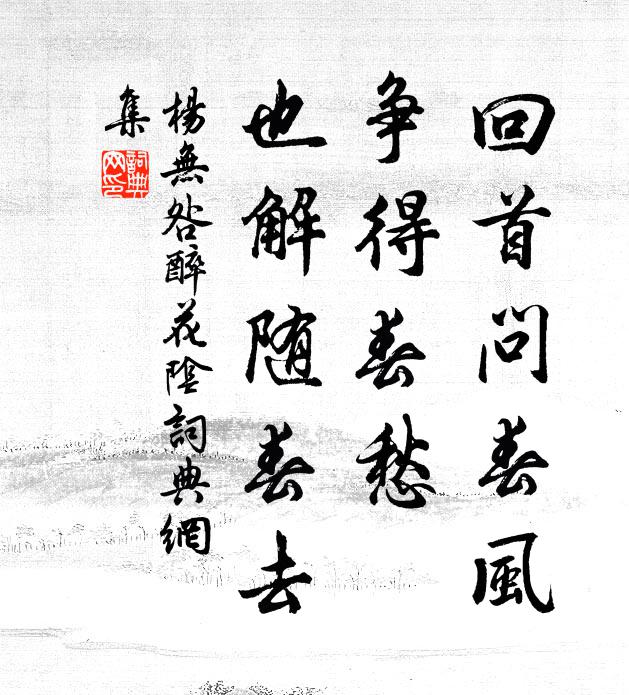 回首问春風
争得春愁
也解随春去
楊無咎醉花陰詞典網
集
詞典
网印